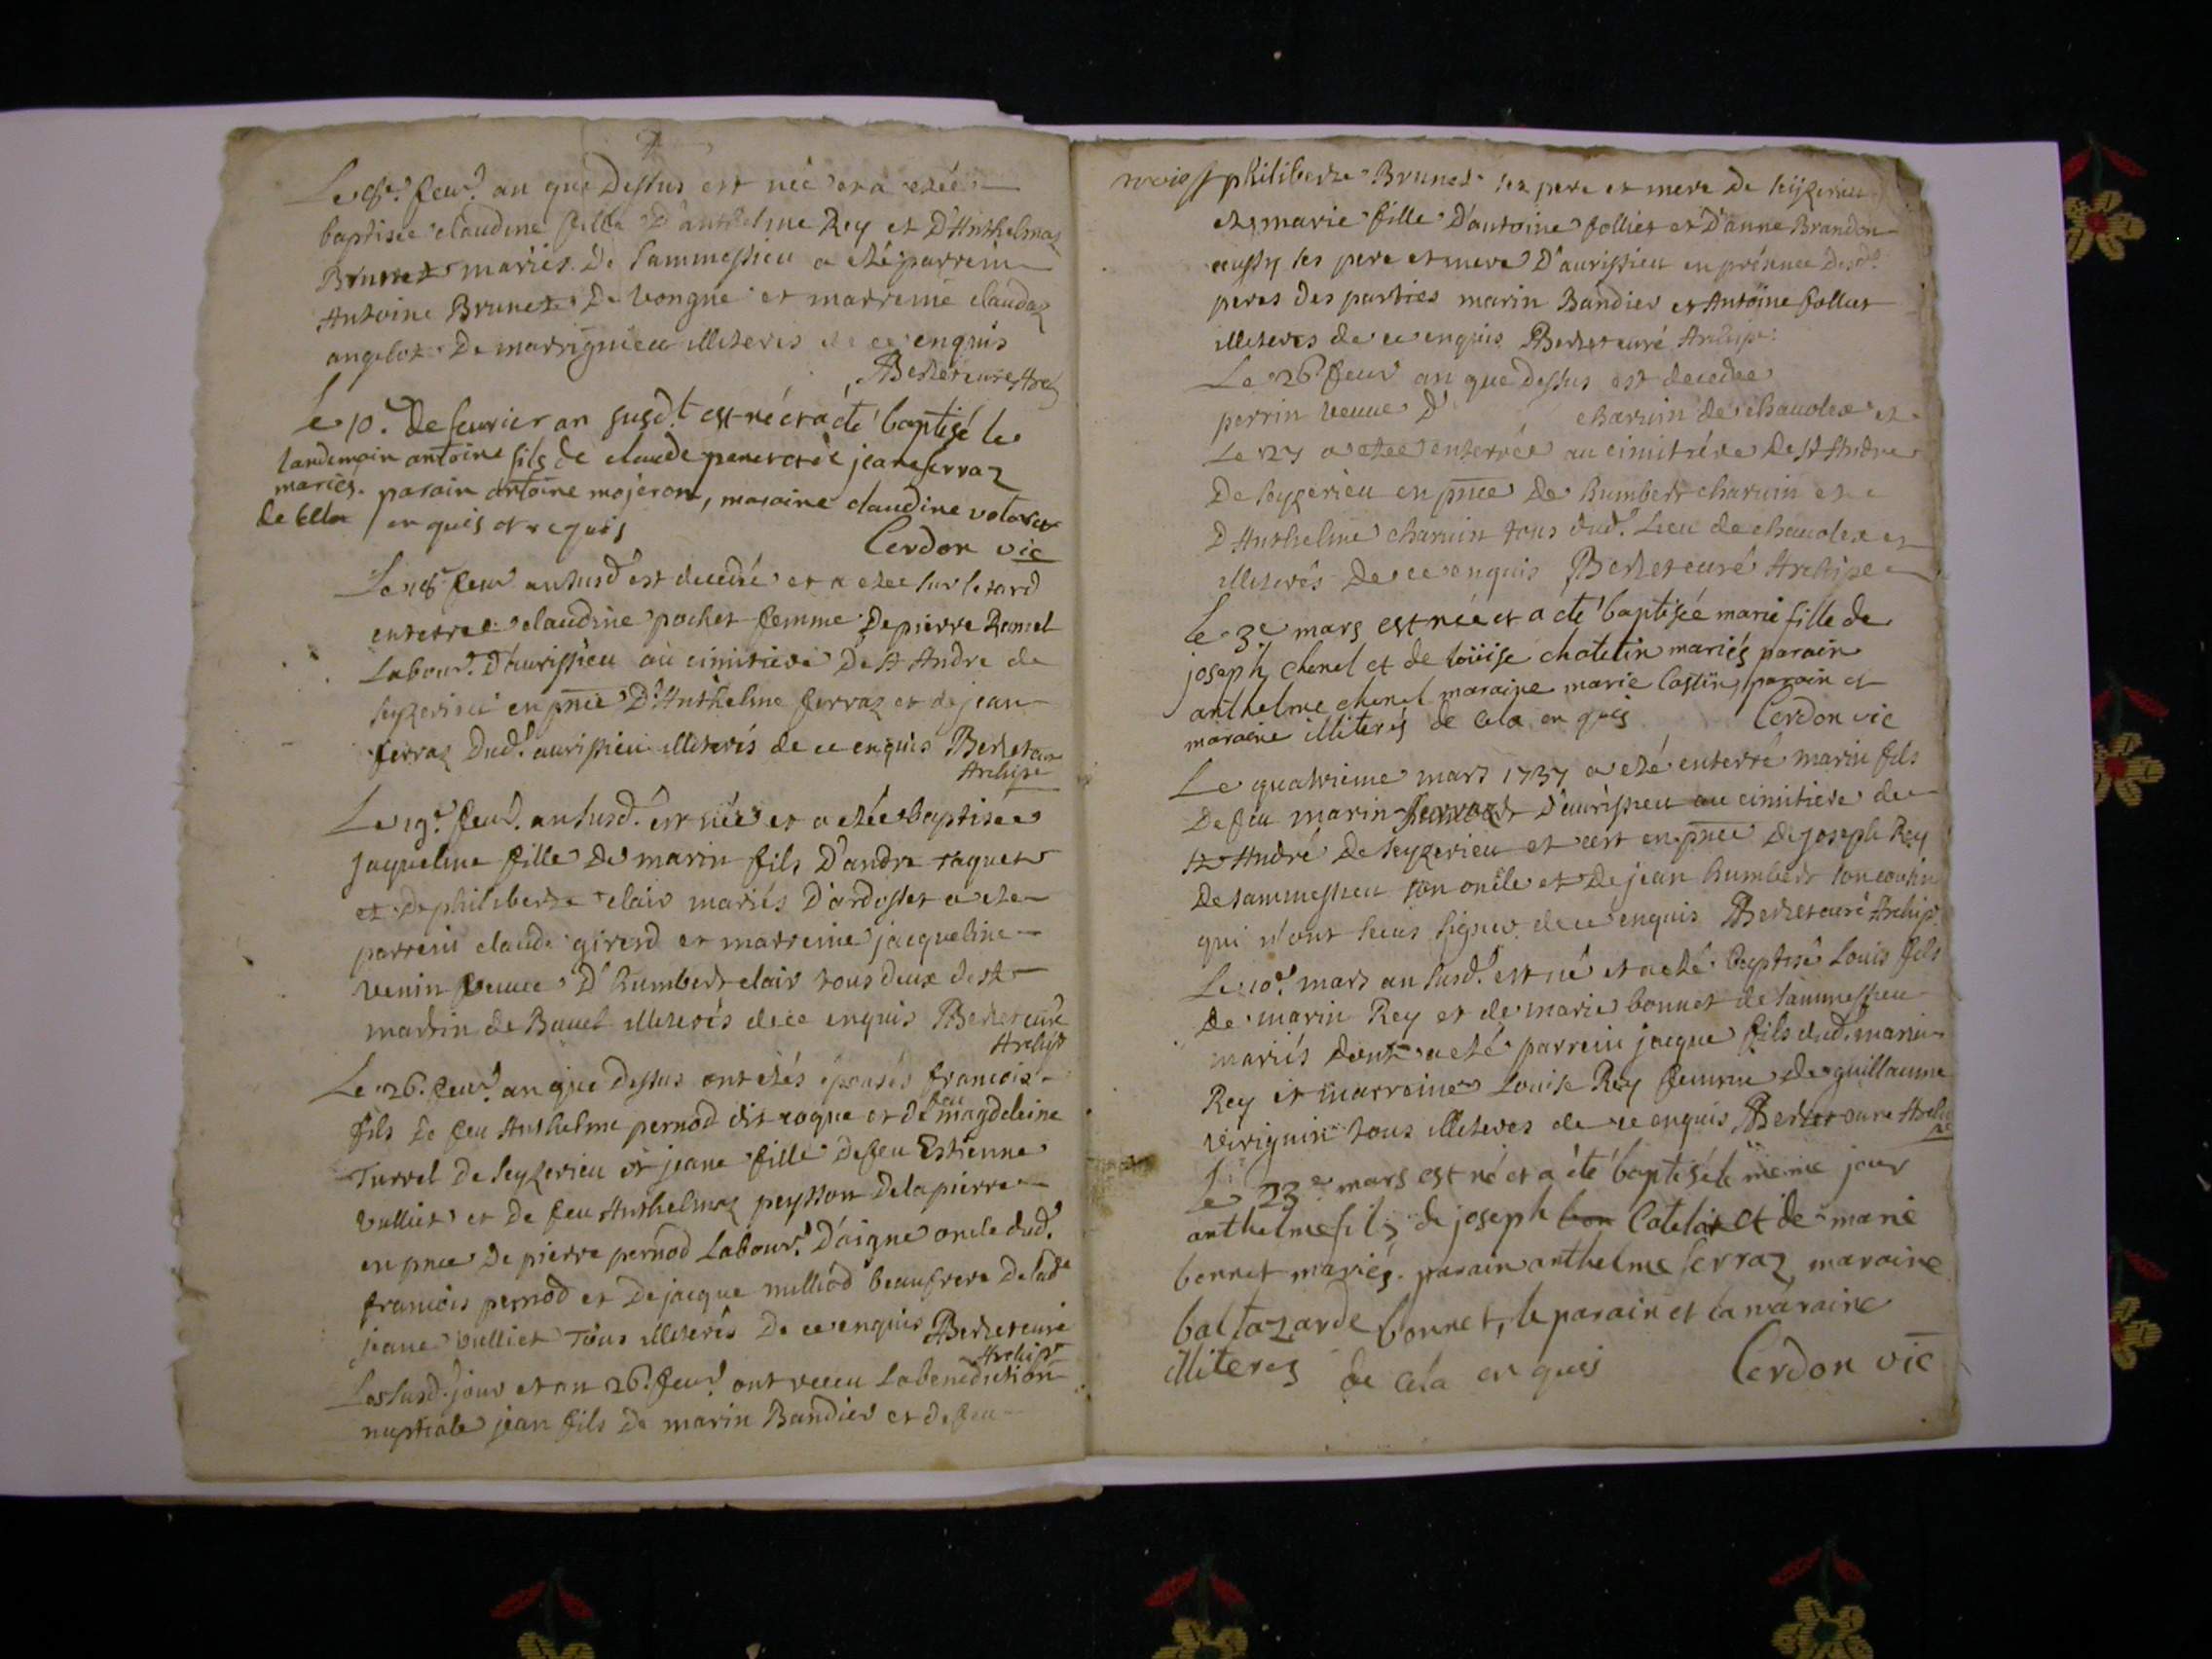 Le 8e. feur. an que Dessus est née et a etée
baptisée claudine fille D'anthelme Rey et D'Anthelmaz
Brunet mariés De Sammessieu a eté parrein
Antoine Brunet De vongne et marreine claudaz
angelot De marrignieu illiterés de ce enquis
Berlet curé Arch
Le 10e. De feurier an susd.t est né et a eté baptisé le
landemain antoine fils de claude penet et de jeane ferraz
mariés. parain antoine mojeron, maraine claudine votaret
de Cela / en quis et requis Cerdon vic
Le 18e feur an susd est decedée et a etée sur le tard
enterree claudine pochet femme De pierre Ramel
Labour. D'aurissieu au cimitiere De st Andre de
seyzerieu en pnce D'Anthelme ferraz et de jean
ferraz Dud. aurissieu illiterés de ce enquis Berlet cur
Archipr
Le 19e. feur. an susd. est née et a etée baptisée
jaqueline fille De marin fils D'andre raquet
et De philiberte clair mariés D'ardosset a ete
parrein claude girerd et marreine jacqueline
venin veuue D'humbert clair tous deux de st
martin de Bauel illiterés de ce enquis Berlet curé
Archipr
Le 26. feur. an que Dessus ont etés epousés francois
fils De feu Anthelme pernod dit roque et de feu magdeleine
Turrel De seyzerieu et jeane fille De feu Estienne
vulliet et De feu Anthelmaz peysson De la pierre
en pnce De pierre pernod Labour. D'aigne oncle dud.
francois pernod et De jacque milliod beaufrere De lade
jeane vulliet Tous illiterés De ce enquis Berlet curé
Archipr
Les susd. jour et an 26. feur. ont receu La benediction
nuptiale jean fils De marin Bandier et de feu
philiberte Brunet ses pere et mere De seyzerieu
et marie fille D'antoine folliet et D'anne Brandon
aussy ses pere et mere D'aurissieu en présence Desd.
peres des parties marin Bandier et Antoine folliet
illiterés de ce enquis Berlet curé Archipr.
Le 26. feur an que Dessus est decedee
perrin veuue D' charuin de chauolex et
Le 27 a etee enterrée au cimitiére De st Andre
De seyzerieu en pnce De humbert charuin et
D'Anthelme charuin tous dud. Lieu de chauolex et
illiterés De ce enquis Berlet curé Archipr
Le 3e mars est née et a eté baptisée marie fille de
joseph chenel et de loüise chatelin mariés parain
anthelme chenel maraine marie Costin, parain et
maraine illiterés de Cela en quis Cerdon vic
Le quatrieme mars 1737 a eté enterré marin fils
De feu marin D'aurissieu au cimitiere de
st André De seyzerieu et cest en pnce De joseph Rey
De sammessieu son oncle et De jean humbert son cousin
qui n'ont sceus signer de ce enquis Berlet curé Archipr.
Le 10e. mars an susd. est né et a eté baptisé Louis fils
De marin Rey et de marie bonnet de sammessieu
mariés dont a eté parrein jacque fils dud. marin
Rey et marreine Louise Rey femme de guillaume
virignin tous illiterés de ce enquis Berlet cure Archi
pr
Le 23e mars est né et a été baptisé le meme jour
anthelme fils de joseph bon Catelin et de marie
bonnet mariés. parain anthelme ferraz, maraine
baltazarde bonnet, le parain et la maraine
illiterés de Cela en quis Cerdon vic